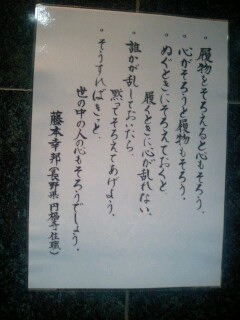 履物をそろえると心もそろう。
心がそろうと履物もそろう。
ぬぐときにそろえておくと、
履くときに心が乱れない。
誰かが乱しておいたら、
黙ってそろえてあげよう。
そうすればきっと、
世の中の人の心もそろうでしょう。
藤本幸邦(長野県円福寺住職)